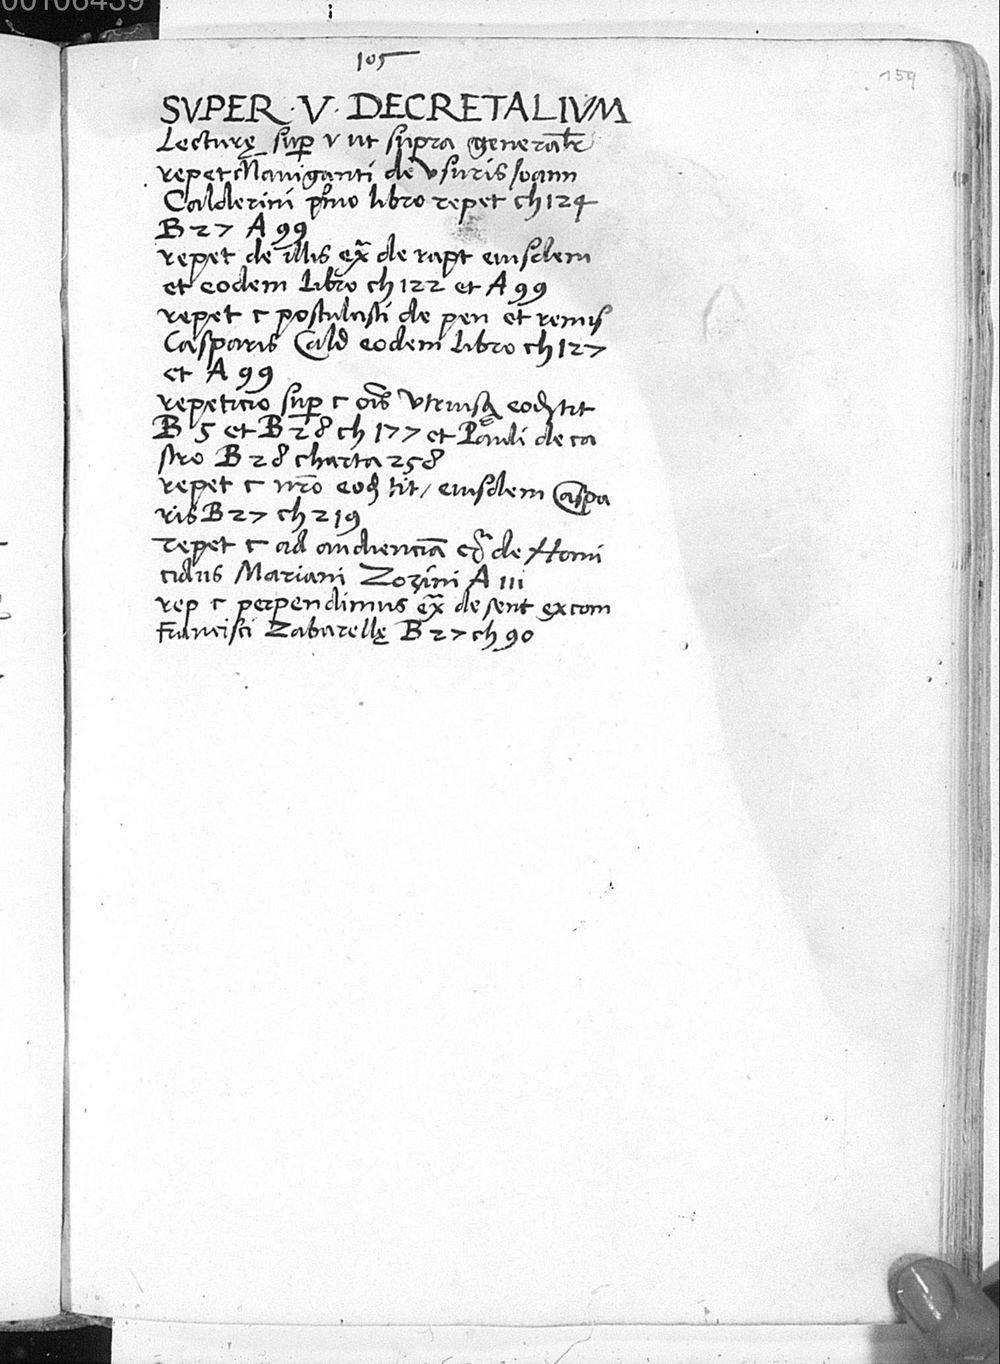 00106439
105
159
SVPER · V · DECRETALIVM
Lecturę sup̱ v ut supra generalr̄
repet c Nauiganti de vsuris Ioann
Calderini p̄mo libro repet ch 124
B 27 A 99
repet de illis ex̄ de rapt eiusdem
et eodem libro ch 122 et A 99
repet c postulasti de pen et remis
Casparis Cald eodem libro ch 127
et A 99
repeticio sup̱ c oīs vtriusq eod tit
B 5 et B 28 ch 177 et Pauli de ca
stro B 28 charta 258
repet c nr̄o eod tit / eiusdem Caspa
ris B 27 ch 219
repet c ad audienciā ex̄ de Homi
cidiis Mariani Zozini A 111
rep c perpendimus ex̄ de sent excom
Francisci Zabarellę B 27 ch 90